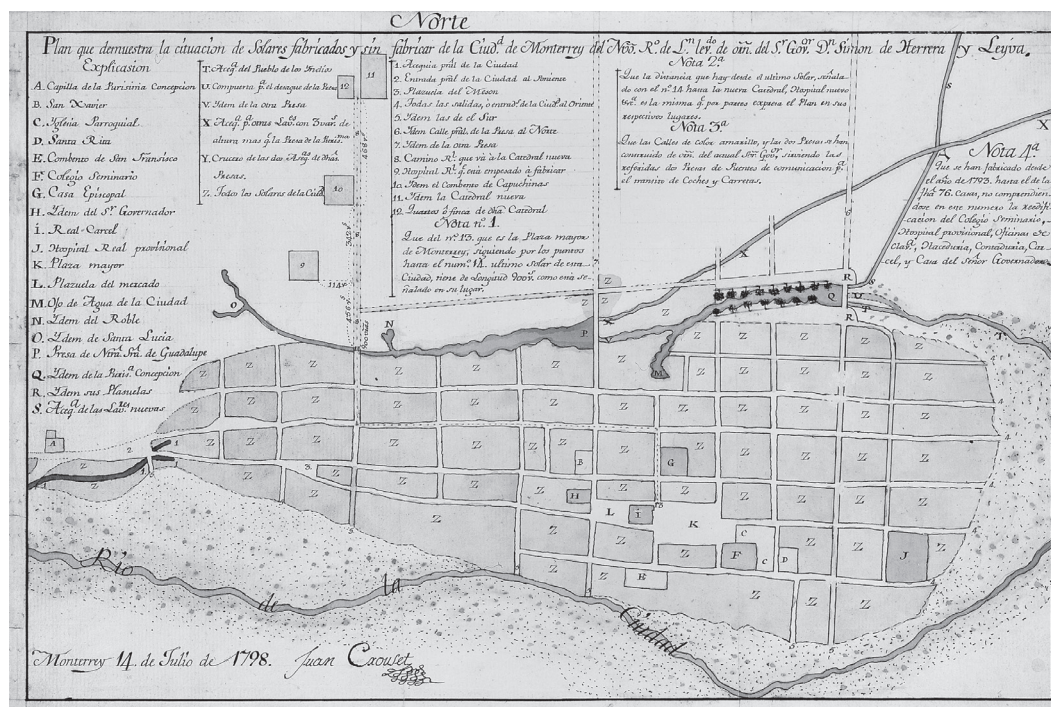 Norte
Plan que demuestra la cituacion de Solares fabricados y sin fabricar de la Ciud.d de Monterrey del Nvo. R.o de L.n lev.do de orn. del S.r Gov.r D.n Simon de Herrera y Leyva.
Explicasion
A. Capilla de la Purisima Concepcion
B. San Xavier
C. Iglesia Parroquial
D. Santa Rita
E. Combento de San Fransisco
F. Colegio Seminario
G. Casa Episcopal
H. Ydem del S.r Governador
i. Real Carcel
J. Hospital Real provisional
K. Plaza mayor
L. Plazuela del mercado
M. Ojo de Agua de la Ciudad
N. Ydem del Roble
O. Ydem de Santa Lucia
P. Presa de Ntrã. Srã. de Guadalupe
Q. Ydem de la Puris.a Concepcion
R. Ydem sus Plasuelas
S. Aceq.a de las Lav.res nuevas
T. Aceq.a del Pueblo de los Yndios
U. Compuerta p.a el desague de la Presa
V. Ydem de la otra Presa
X. Aceq.a p.a otras Lav.res con 3 var.s de
altura mas q. la Presa de la Puris.ma
Y. Crucero de las dos Aceq.s de dhãs.
Presas.
Z. Todos los Solares de la Ciud.d
1. Acequia prãl. de la Ciudad
2. Entrada prãl. de la Ciudad al Poniente
3. Plazuela del Meson
4. Todas las salidas, ò entrad.s de la Ciud.d al Oriente
5. Ydem las de el Sur
6. Ydem Calle prãl. de la Presa al Norte
7. Ydem de la otra Presa
8. Camino R.l que vá a la Catedral nueva
9. Hospital R.l q. está empesado á fabricar
10. Ydem el Combento de Capuchinas
11. Ydem la Catedral nueva
12. Quartos ó finca de dhã. Catedral
Nota n.o 1.
Que del n.o 13. que es la Plaza mayor
de Monterrey, siguiendo por los puntos
hasta el num.o 14. ultimo Solar de esta
Ciudad, tiene de Longitud 900 v.s como está se-
ñalado en su lugar.
Nota 2.a
Que la distancia que hay desde el ultimo Solar, señala-
do con el n.o 14 hasta la nueva Catedral, Hospital nuevo
es la misma q. por partes expresa el Plan en sus
respectivos lugares.
Nota 3.a
Que las Calles de color amarillo, y las dos Presas se han
construido de orñ. del actual S.r Gov.or, sirviendo las
referidas dos Presas de Puentes de comunicacion p.a
el transito de Coches y Carretas.
Nota 4.a
Que se han fabricado desde
el año de 1793. hasta el de la
fhã 76. Casas, no comprendien-
dose en este numero la reedifi-
cacion del Colegio Seminario,
Hospital provisional, Oficinas de
Clav.a, Haceduria, Contaduria, Car-
cel, y Casa del Señor Governador.
Rio de la Ciudad
Monterrey 14. de Julio de 1798. Juan Crouset